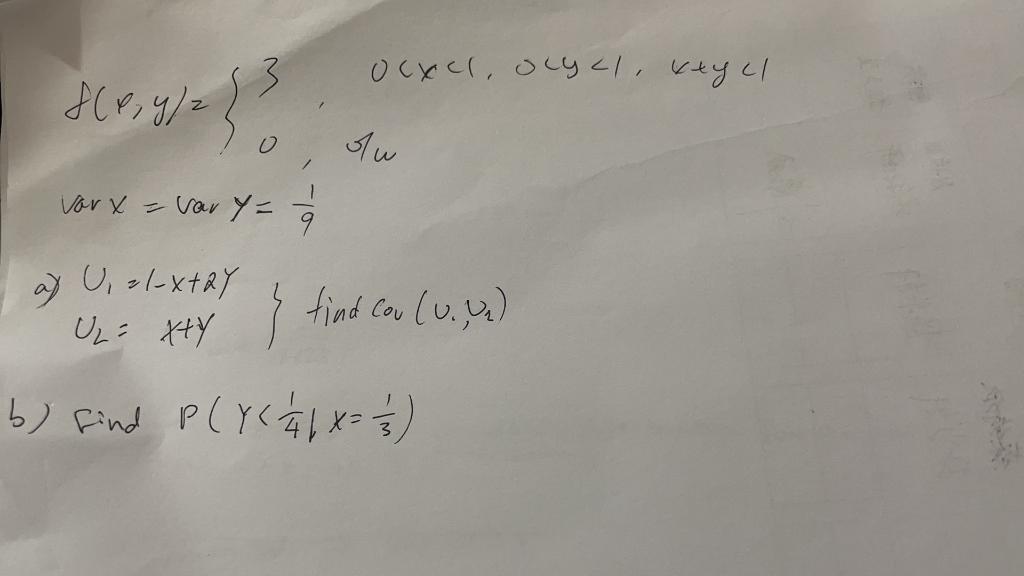 f(x,y)= { 3 , 0<x<1, 0<y<1, x+y<1
0 , o/w
var x = var y = 1/9
a) U₁ = 1-x+2Y
U₂ = x+Y } find Cov (U₁,U₂)
b) Find P(Y<1/4 | X=1/3)